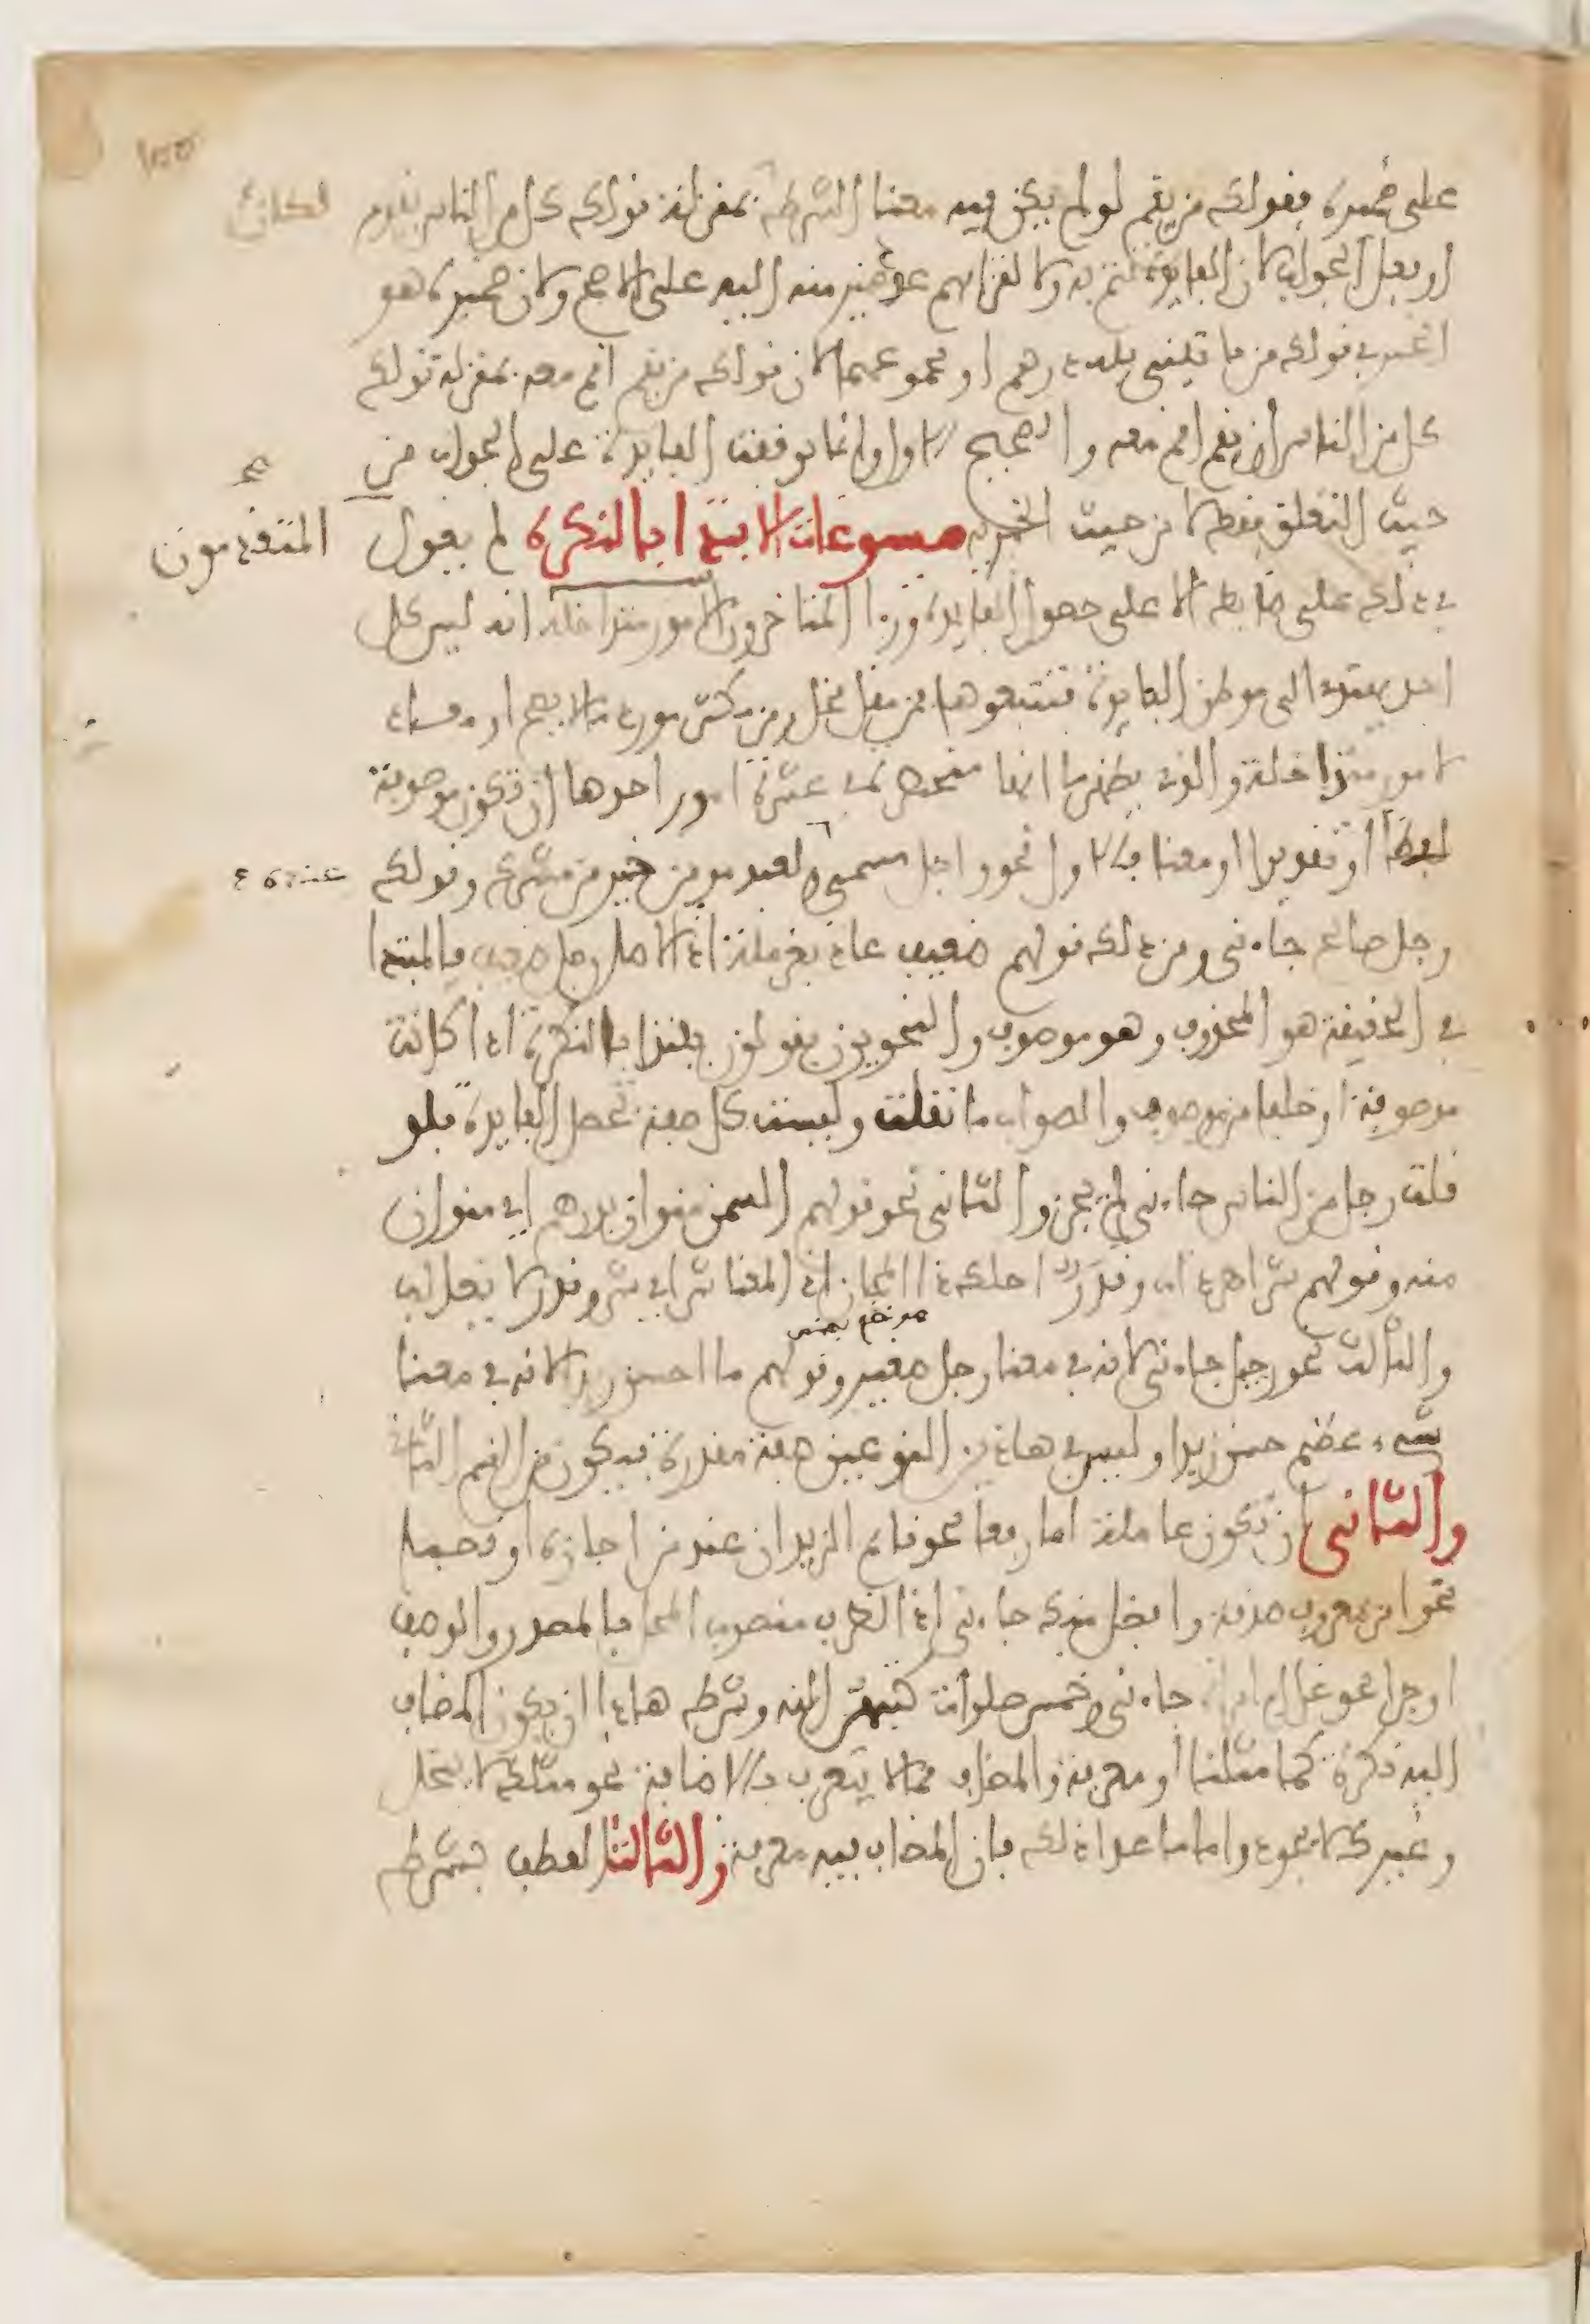 على ضميره فقولك من يقم لو لم يكن فيه معنا الشرط بمنزلة قولك كل من الناس يقوم
او فعل الجواب لان الفايدة تتم به ولالتزامهم عود ضمير منه اليه على الاصح ولان ضميره هو
الخبر في قولك من ياتيني فله درهم او مجموعهما لان قولك من يقم اقم معه بمنزلة قولك
كل من الناس ان يقم اقم معه والصحيح الاول وانما توقفت الفايدة على الجواب من
حيث التعلق فقط لا من حيث الخبريه مسوغات الابتدا بالنكرة لم يعول
المتقدمون
في ذلك على ضابط الا على حصول الفايدة وردا المتاخرون لامور متداخلة انه ليس كل
احد يهتدي الى موطن الفايدة فتتبعوها فمن مقل مخل ومن مكثر مورد ما لا يصح او معداد
لامور متداخلة والذي يظهر ما انها منحصرة في عشرة امور احدها ان تكون موصوفة
لفظا او تقديرا او معنا فالاول نحو واجل مسمى ولعبد مومن خير من مشرك وقولك
عنده
رجل صالح جاءني ومن ذلك قولهم ضعيف عاذ بقرملة اذ الاصل رجل ضعيف فالمبتدا
في الحقيقة هو المحذوف وهو موصوف والنحويون يقولون يبتدا بالنكرة اذا كانت
موصوفة او خلفا من موصوف والصواب ما نقلت وليست كل صفة تحصل الفايدة فلو
قلت رجل من الناس جاءني لم يجز والثاني نحو قولهم السمن منوان بدرهم اي منوان
منه وقولهم شر اهر ذا ناب وقدر احلك ذا المجاز اذ المعنا شر اي شر وقدر لا يغالب
والثالث نحو رجيل جاءني لانه في معنا رجل صغير وقولهم ما احسن زيدا لانه في معنا
شيء عظيم حسن زيدا وليس في هاذين النوعين صفة مقدرة فيكون من القسم الثاني
والثاني ان تكون عاملة اما رفعا نحو قايم الزيدان عند من اجازه او نصبا
نحو امر بمعروف صدقة وافضل منك جاءني اذ الظرف منصوب المحل بالمصدر والوصف
او جرا نحو غلام امراة جاءني وخمس صلوات كتبهن الله وشرط هاذا ان يكون المضاف
اليه نكرة كما مثلنا او معرفة والمضاف مما لا يتعرف بالاضافة نحو مثلك لا يبخل
وغيرك لا يجود واما ما عدا ذلك فان المضاف فيه معرفة والثالث العطف بشرط